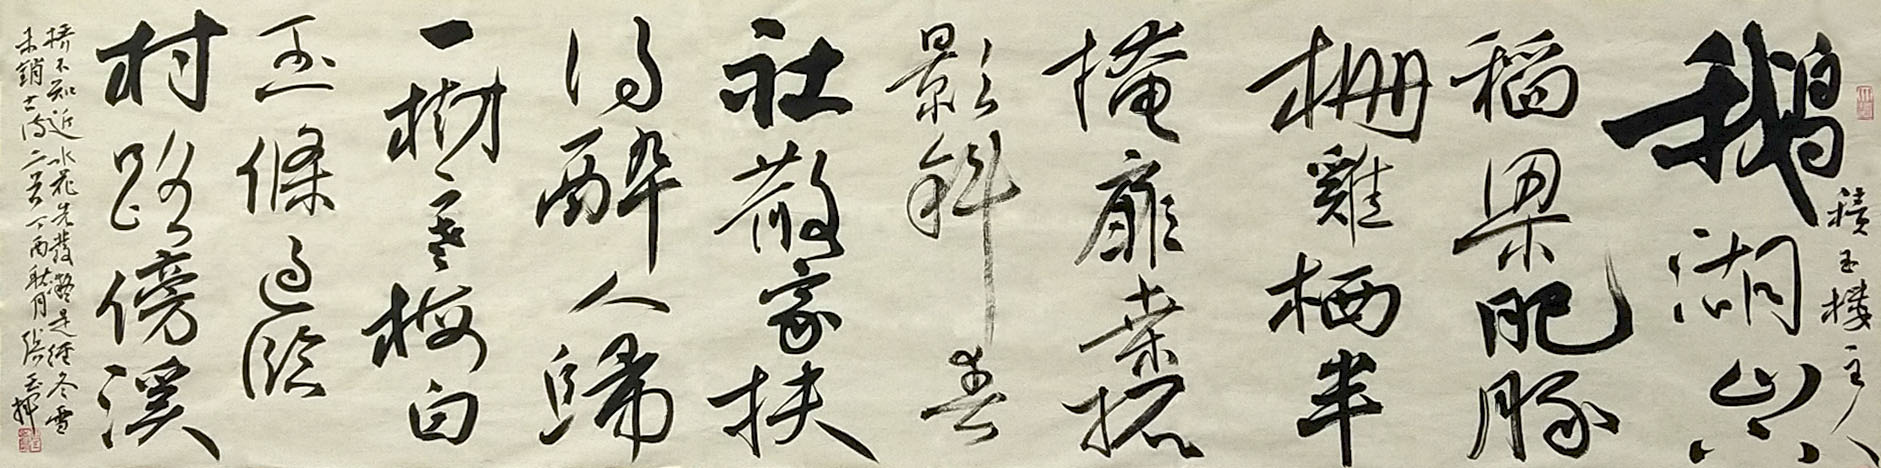 積玉樓主
鵝湖山下
稻梁肥豚
栅雞栖半
掩扉桑柘
影斜春
社散家扶
得醉人歸
一樹寒梅白
玉條迥臨
村路傍溪
橋不知近水花先發疑是經冬雪
未銷 古诗二首 丁酉秋月